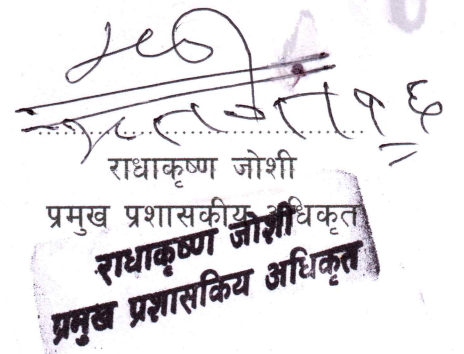 राधाकृष्ण जोशी
प्रमुख प्रशासकीय अधिकृत
राधाकृष्ण जोशी
प्रमुख प्रशासकिय अधिकृत